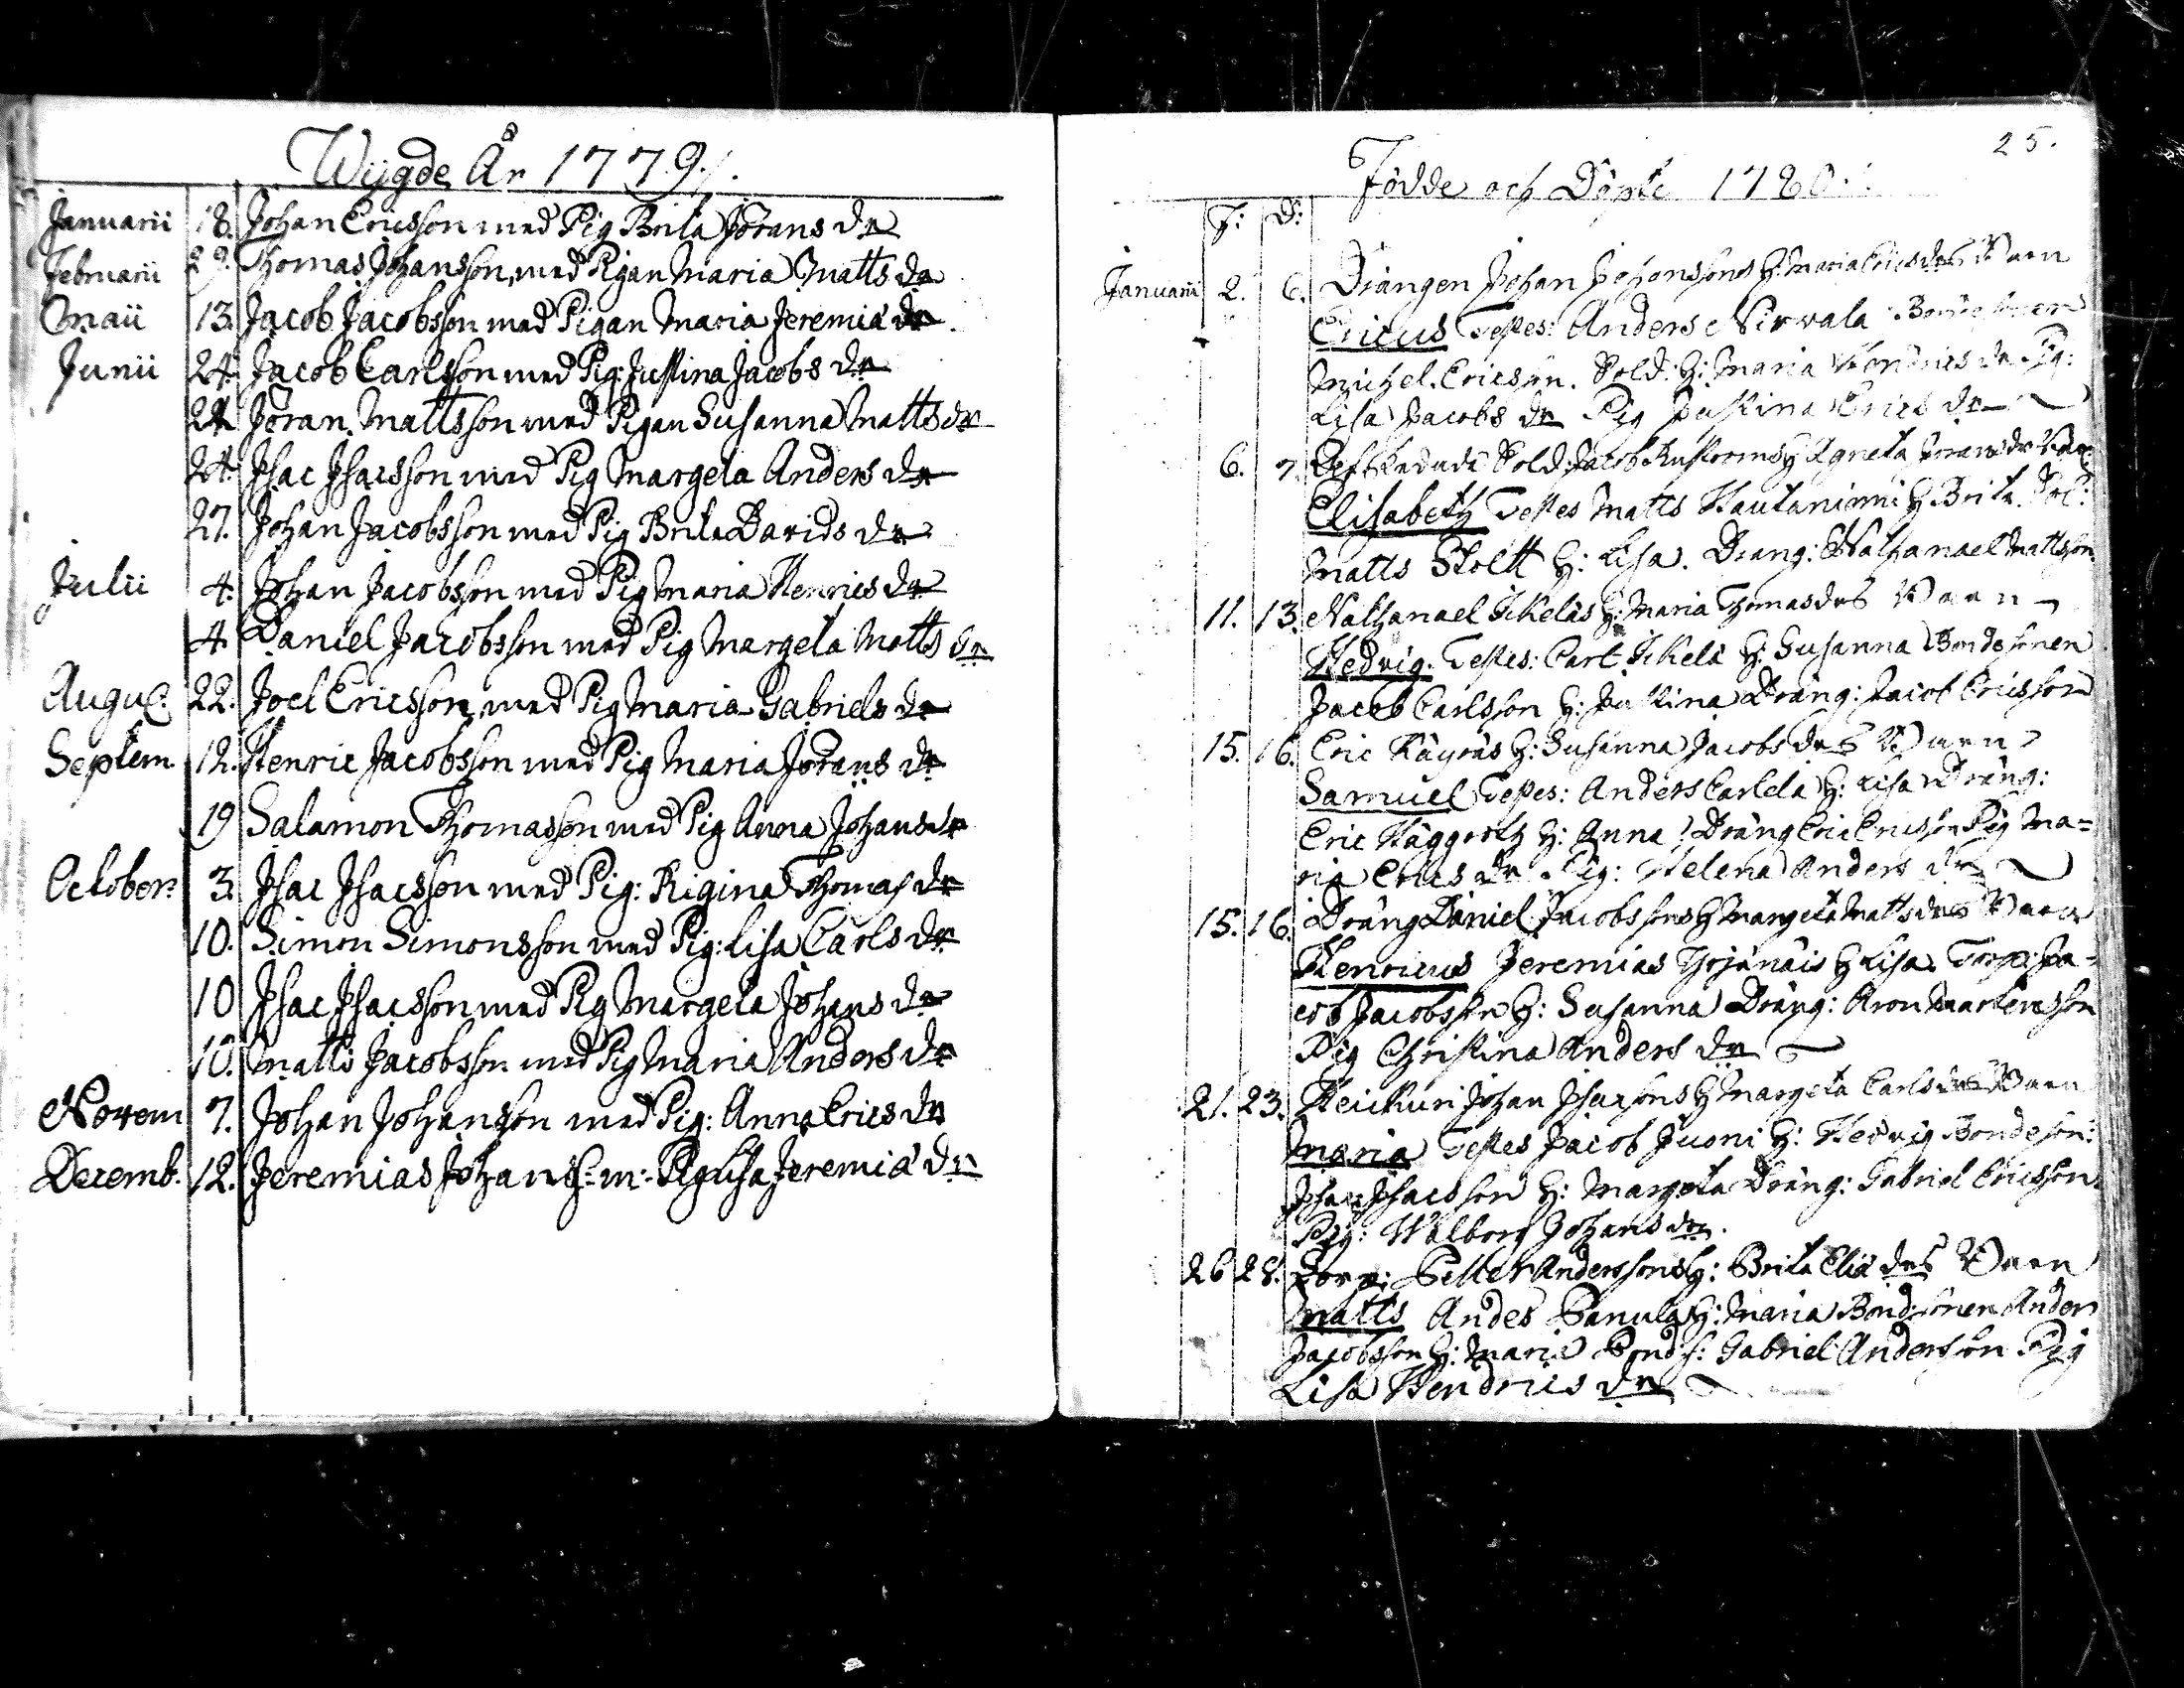 Wijgde År 1779./.
Januarii 18. Johan Ericsson med Pig Brita Jörans dr
Februarii Thomas Johansson, med Pigan Maria Matts dr
Maii 13. Jacob Jacobsson med Pigan Maria Jeremiæ dr
Junii 24. Jacob Carlsson med Pig: Justina Jacobs dr
24 Jöran Mattsson med Pigan Susanna Matts dr
24. Isac Isacsson med Pig Margeta Anders dr
27. Johan Jacobsson med Pig Brita Davids dr
Julii 4. Johan Jacobsson med Pig Maria Henrics dr
4 Daniel Jacobsson med Pig Margeta Matts dr
Augus: 22. Joel Ericsson, med Pig Maria Gabriels dr
Septem 12. Henric Jacobsson med Pig Maria Jörans dr
19 Salamon Thomasson med Pig Anna Johans dr
October: 3. Isac Isacsson med Pig: Rigina Thomas dr
10. Simon Simonsson med Pig: Lisa Carls dr
10 Isac Isacsson med Pig Margeta Johans dr
10. Matts Jacobsson med Pig Maria Anders dr
Novem 7. Johan Johansson med Pig: Anna Erics dr
Decemb. 12. Jeremias Johans s: m: Pig Lisa Jeremiæ dr
25.
Födde och Döpte 1780.
F: D:
Januarii 2. 6. Drängen Johan Johanssons H: Maria Erics drs Barn
Ericus Testes: Anders Nirvala Bondesonen
Michel Ericson. Sold: H: Maria Hendrics dr Pig:
Lisa Jacobs dr Pig Justina Erics dr
6. 7. Sold: Jacob H Agneta Jörans dr Barn
Elisabeth Testes Matts Hautaniemi H Brita. Sol:
Matts Stolt H: Lisa. Dräng: Nathanael Mattsson
11. 13. Nathanael Ikeläs H: Maria Thomas drs Barn
Hedvig. Testes: Carl Ikelä H: Susanna Bondesonen
Jacob Carlsson H: Justina Dräng: Jacob Ericsson
15. 16. Eric Käyräs H: Susanna Jacobs drs Barn
Samuel Testes: Anders Carlela H: Lisa Dräng:
Eric Häggroth H: Anna Dräng Eric Ericsson Pig Ma=
ria Erics dr Pig: Helena Anders dr
15. 16. Dräng Daniel Jacobssons H Margeta Matts drs Barn
Henricus Jeremias H Lisa. Torp: Ja-
cob Jacobsson H: Susanna Dräng: Aron Martensson
Pig Christina Anders dr
21. 23. Heickuri Johan Isacsons H Margeta Carls drs Barn
Maria Testes Jacob Juoni H: Hedvig Bondeson:
Isac Isacsson H: Margeta Dräng: Gabriel Ericsson
Pig: Walborg Johans dr.
26 28. Torp: Petter Anderssons H: Brita Eliæ drs Barn
Matts Andes Panula H: Maria Bondsonen Anders
Jacobsson H: Maria Bond: s: Gabriel Andersson Pig
Lisa Hendrics dr